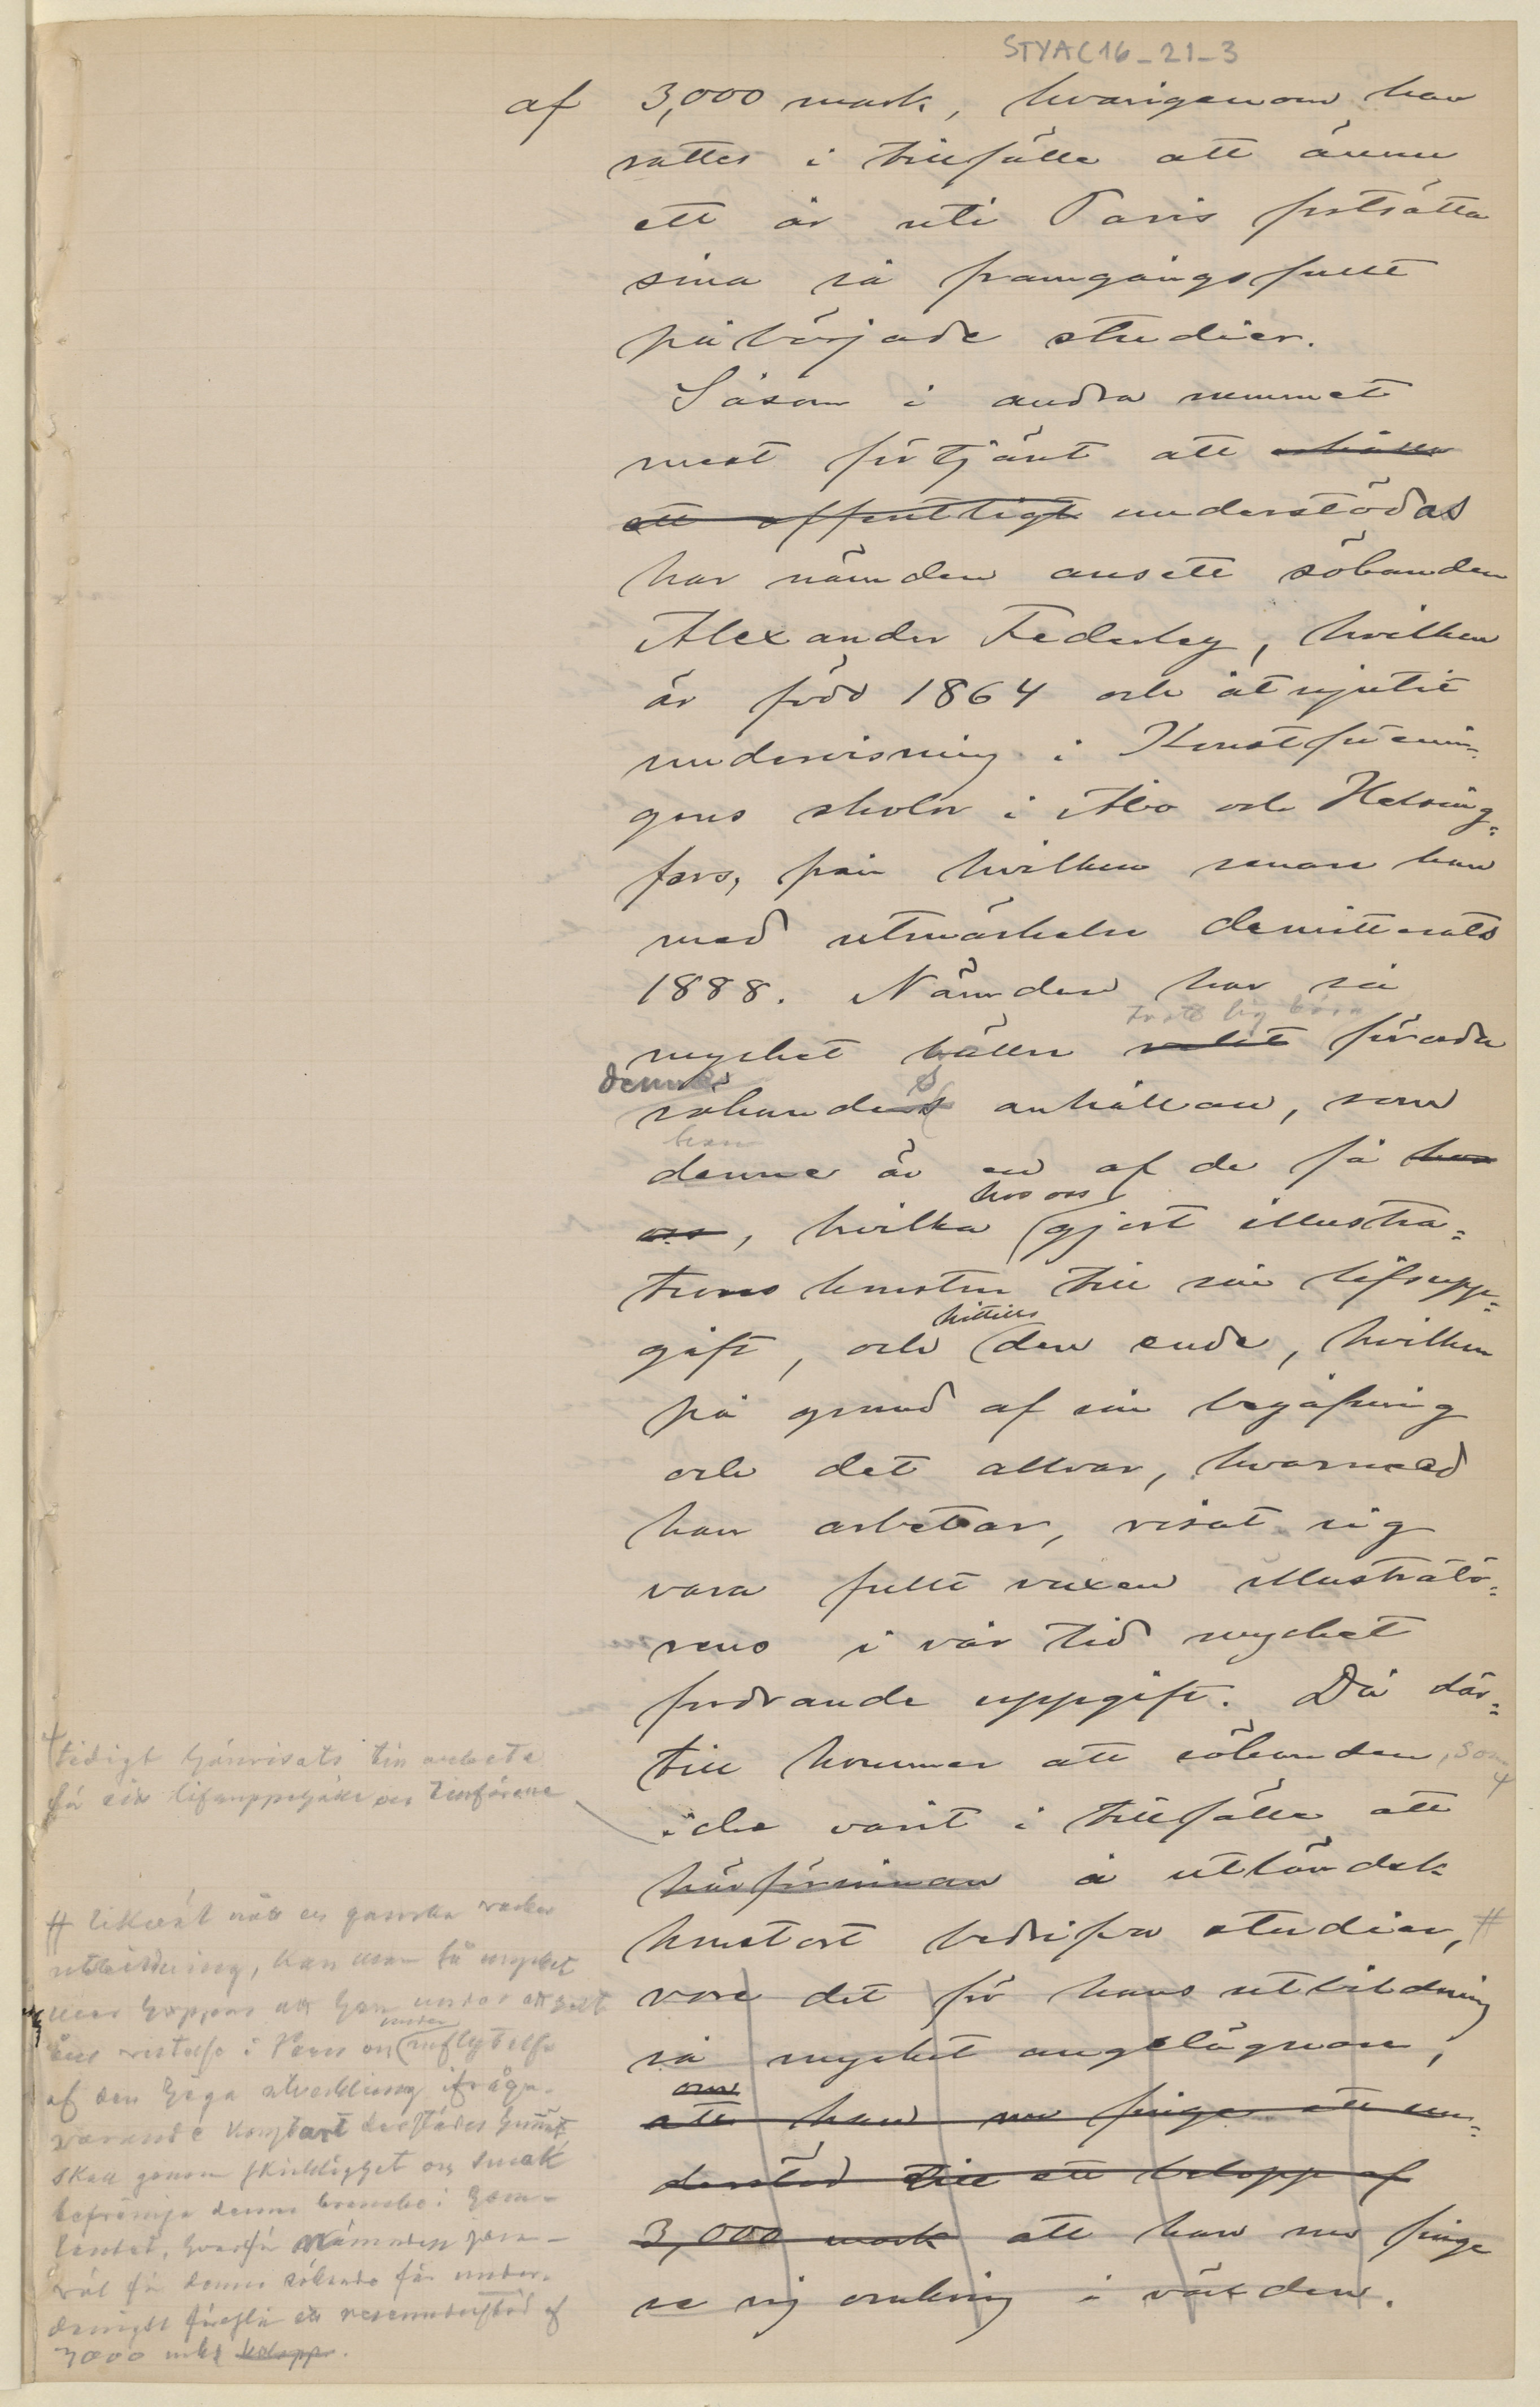 STYAC16_21_3
af 3,000 mark, hvarigenom han
sattes i tillfälle att ännu
ett år uti Paris fortsätta
sina så framgångsfullt
påbörjade studier.
Såsom i andra rummet
mest förtjänt att erhålla
ett offentligt understödas
har nämden ansett sökanden
Alexander Federley, hvilken
är född 1864 och åtnjutit
undervisning i Konstförenin=
gens skolor i Åbo och Helsing=
fors, från hvilken senare han
med utmärkelse demitterats
1888. Nämden har så
trott sig böra
mycket hällre velat förorda
dennes
sökandes anhållan, som
han
denne är en af de få hos
hos oss
oss, hvilka gjort illustra=
tionskonsten till sin lifsupp=
hittills
gift, och den ende, hvilken
på grund af sin begåfning
och det allvar, hvarmed
han arbetar, visat sig
vara fullt vuxen illustratö=
rens i vår tid mycket
fordrande uppgift. Då där=
till kommer att sökanden, som
icke varit i tillfälle att
härförinnan å utländsk
konstort bedrifva studier, #
vore det för hans utbildning
så mycket angelägnare,
om
att han nu finge ett un=
derstöd till ett belopp af
3,000 mark att han nu finge
se sig omkring i världen.
tidigt hänvisats till arbete
för sitt lifsuppehälle och tillförene
# likväl nått en ganska vacker
utbildning, kan man så mycket
mer hoppas att han under ett helt
års vistelse i Paris och under inflytelse
af den höga utveckling ifråga-
varande konstart derstädes hunnit
skall genom skicklighet och smak
befrämja denna branche i hem-
landet, hvarför Nämnden jem-
väl för denne sökande får under-
dånigst föreslå ett reseunderstöd af
3000 mks belopp.